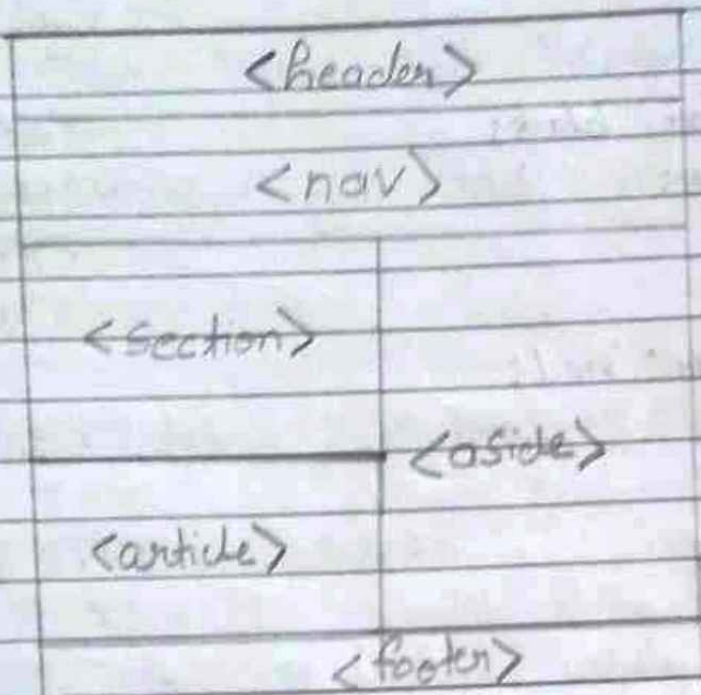 <header>
<nav>
<section>
<aside>
<article>
<footer>